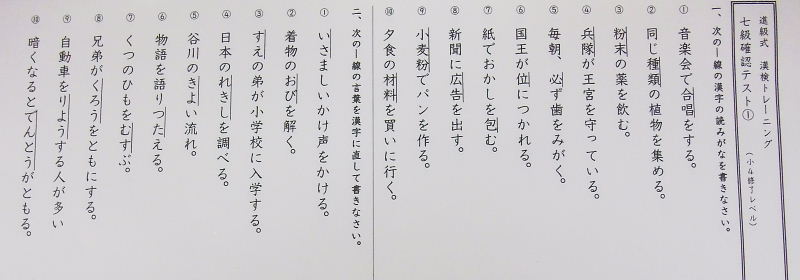 進級式 漢検トレーニング
七級確認テスト① (小4修了レベル)
一、次の―線の漢字の読みがなを書きなさい。
① 音楽会で合唱をする。
② 同じ種類の植物を集める。
③ 粉末の薬を飲む。
④ 兵隊が王宮を守っている。
⑤ 毎朝、必ず歯をみがく。
⑥ 国王が位につかれる。
⑦ 紙でおかしを包む。
⑧ 新聞に広告を出す。
⑨ 小麦粉でパンを作る。
⑩ 夕食の材料を買いに行く。
二、次の―線の言葉を漢字に直して書きなさい。
① いさましいかけ声をかける。
② 着物のおびを解く。
③ すえの弟が小学校に入学する。
④ 日本のれきしを調べる。
⑤ 谷川のきよい流れ。
⑥ 物語を語りつたえる。
⑦ くつのひもをむすぶ。
⑧ 兄弟がくろうをともにする。
⑨ 自動車をりようする人が多い
⑩ 暗くなるとでんとうがともる。